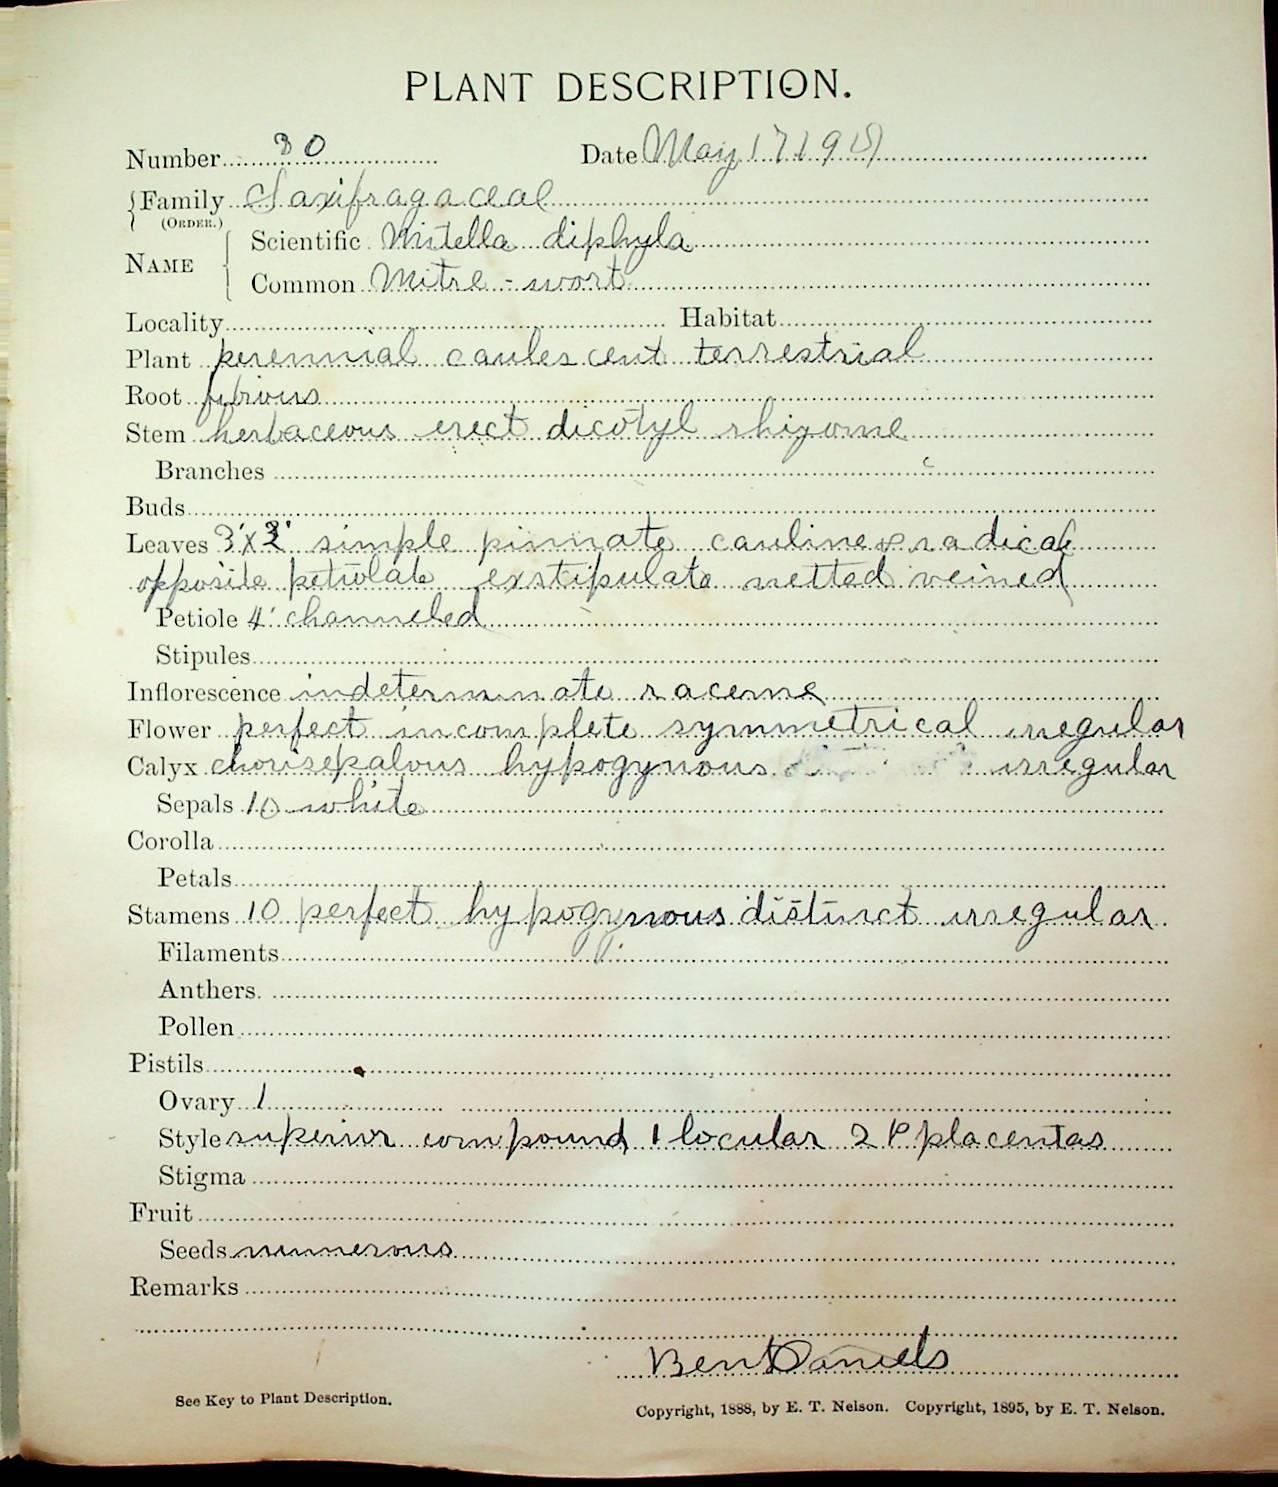 PLANT DESCRIPTION.
Number 30 Date May 17 19
Family Saxifragaceae
(ORDER.)
Scientific Mitella diphyla
NAME
Common Mitre-wort
Locality Habitat
Plant perennial caulescent terrestrial
Root fibrous
Stem herbaceous erect dicotyl rhizome
Branches
Buds
Leaves 3'x3' simple pinnate cauline & radical
opposite petiolate exstipulate netted veined
Petiole 4' channeled
Stipules
Inflorescence indeterminate raceme
Flower perfect incomplete symmetrical irregular
Calyx chorisepalous hypogynous irregular
Sepals 10 white
Corolla
Petals
Stamens 10 perfect hypogynous distinct irregular
Filaments
Anthers
Pollen
Pistils
Ovary 1
Style superior compound 1 locular 2 P placentas
Stigma
Fruit
Seeds numerous
Remarks
Bent Daniels
See Key to Plant Description. Copyright, 1888, by E. T. Nelson. Copyright, 1895, by E. T. Nelson.